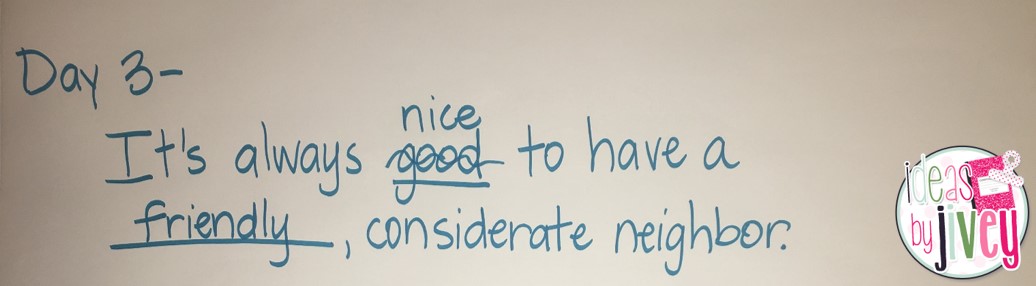 Day 3-
nice
It's always good to have a
friendly, considerate neighbor.
ideas
by jivey